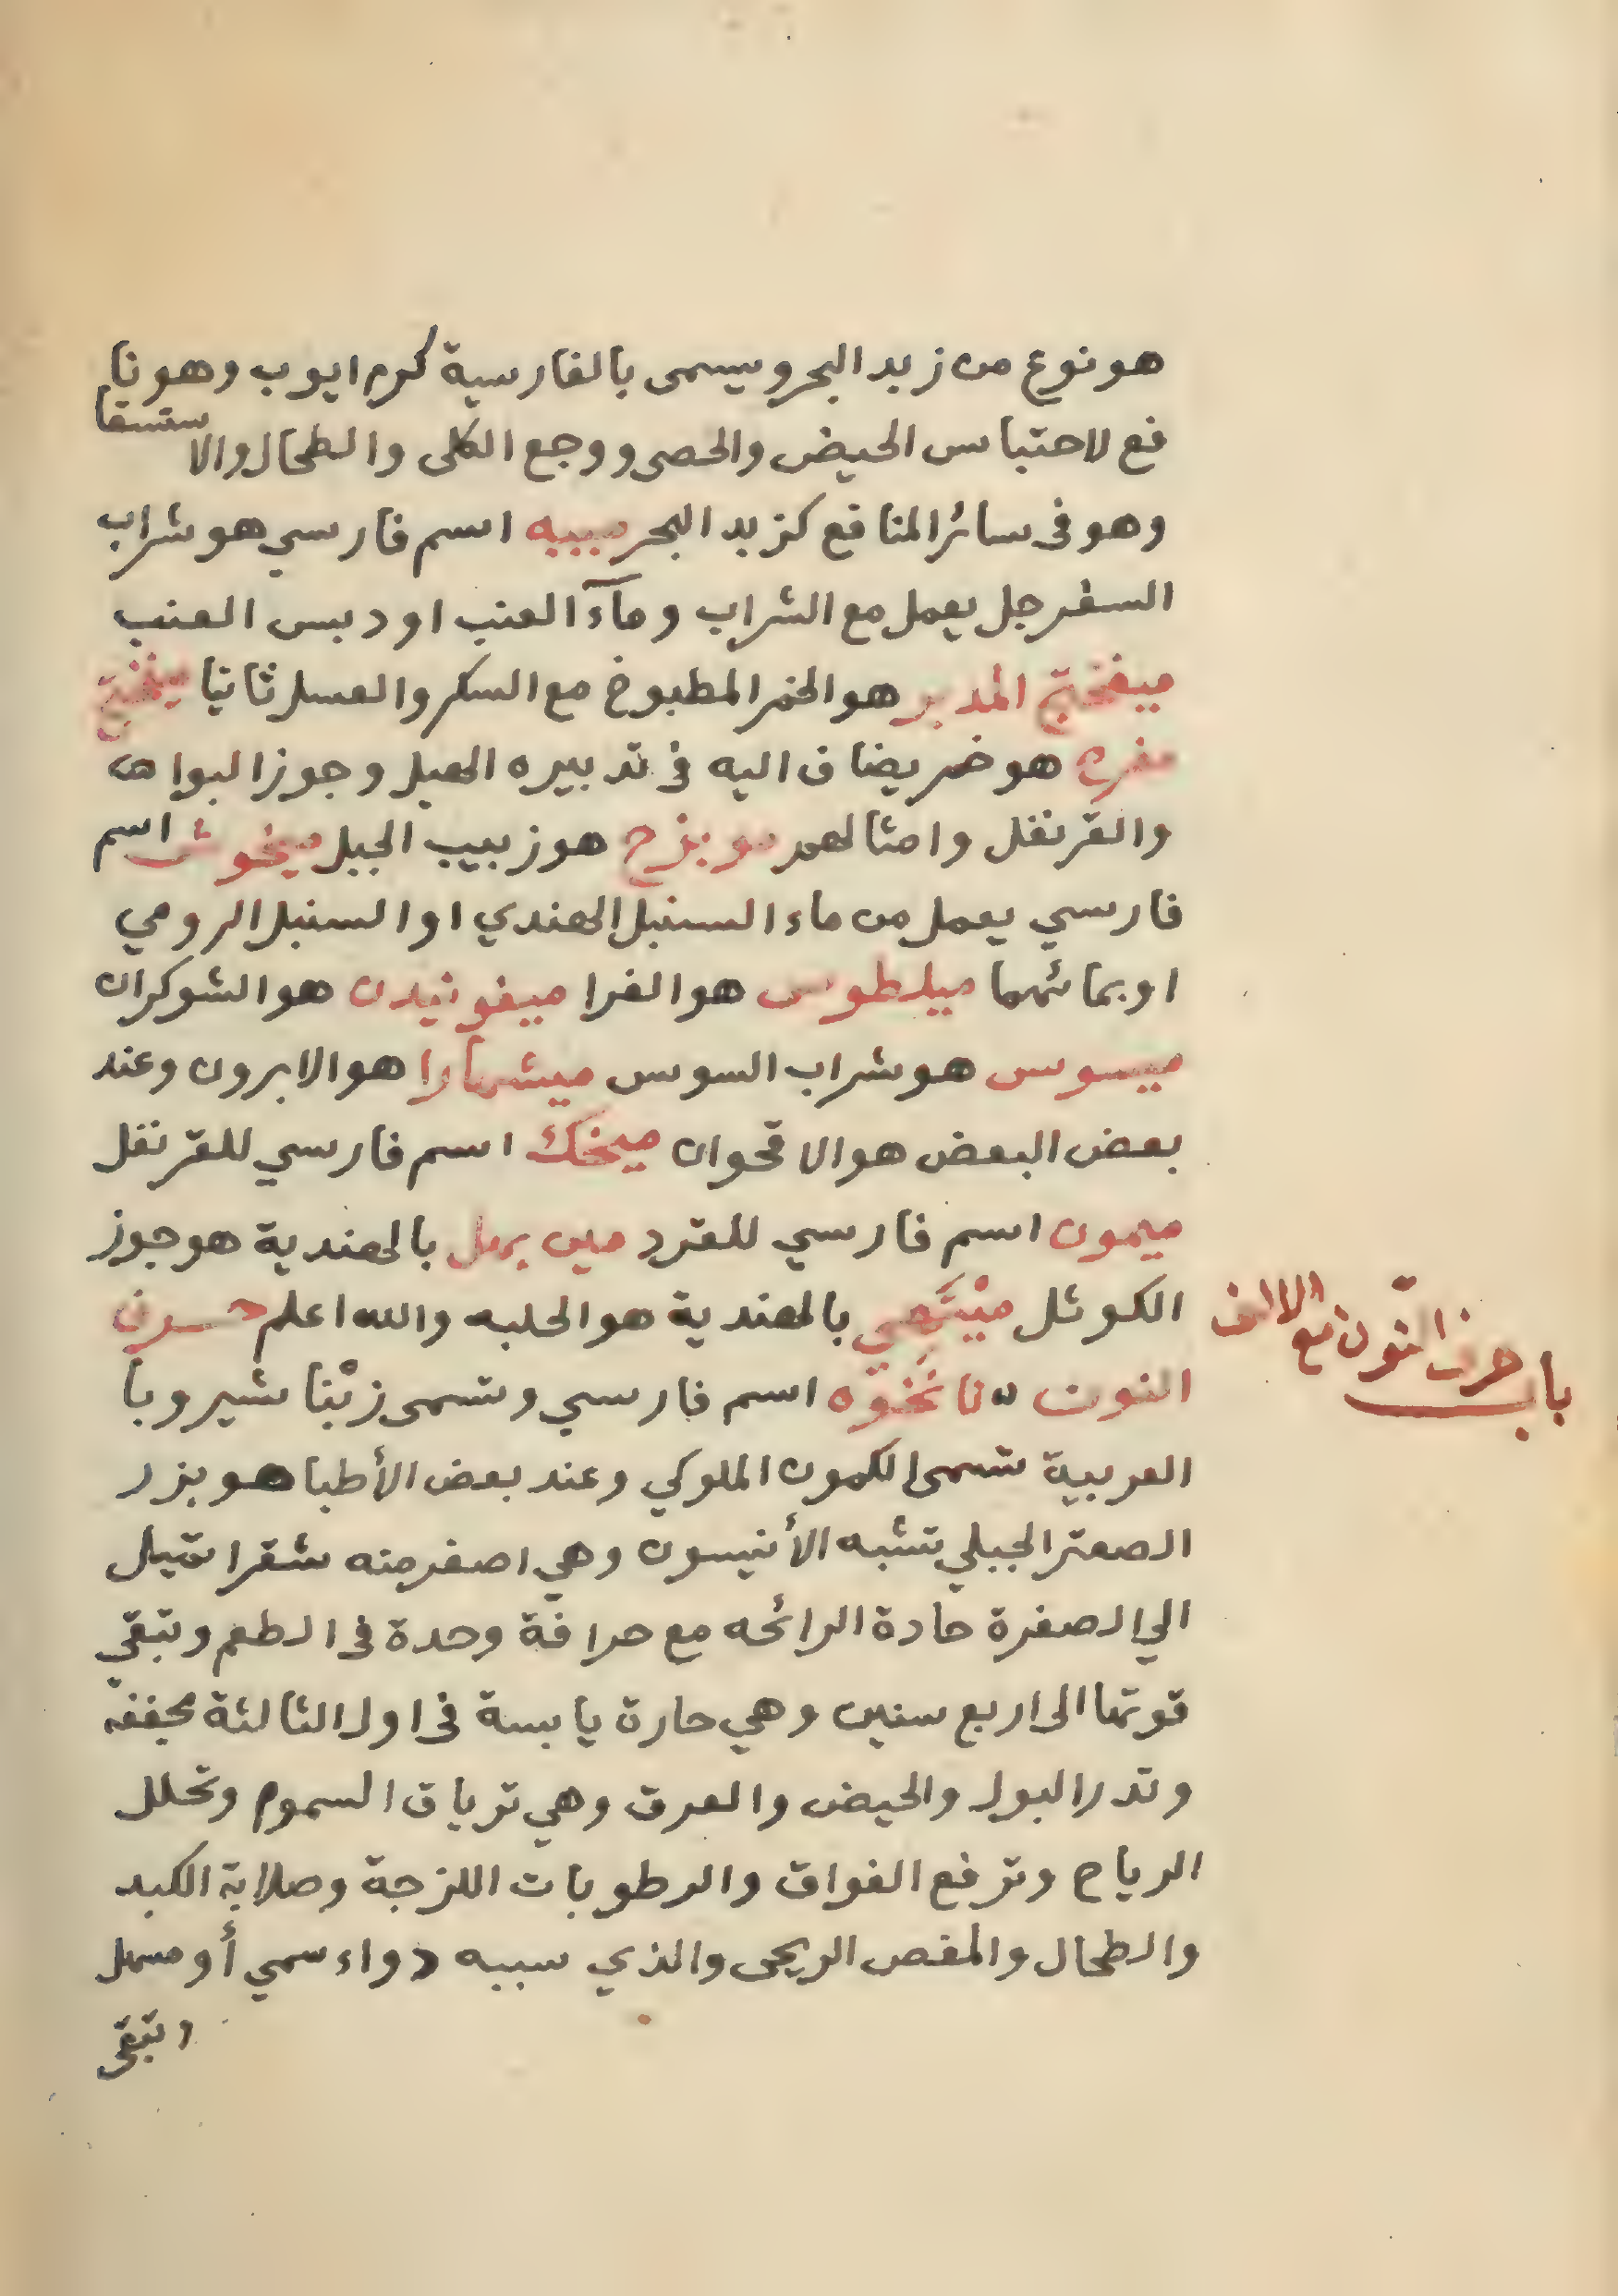 هو نوع من زبد البحر ويسمى بالفارسية كرم ايوب وهو نا
فع لاحتباس الحيض والحصى ووجع الكلى والطحال والاستسقا
وهو فى سائر المنافع كزبد البحر ميبه اسم فارسي هو شراب
السفرجل يعمل مع الشراب ومآء العنب او دبس العنب
ميفختج المدبر هو الخمر المطبوخ مع السكر والعسل ثانيا ميفختج
مفرح هو خمر يضاف اليه فى تدبيره الهيل وجوز البوا
والقرنفل وامثالهم ميويزج هو زبيب الجبل ميخوش اسم
فارسي يعمل من ماء السنبل الهندي او السنبل الرومي
اوبمائهما ميلطوس هو الغرا ميغونيدن هو الشوكران
ميسوس هو شراب السوس ميشهارا هو الابرون وعند
بعض البعض هو الاقحوان ميخك اسم فارسي للقرنفل
ميمون اسم فارسي للقرد مين بهل بالهندية هو جوز
الكوثل ميْتَهي بالهندية هو الحلبه والله اعلم حرف
النون نانَخْوَه اسم فارسي وتسمى زنْنا شير وبا
العربية تسمى الكمون الملوكي وعند بعض الأطبا هو بزر
الصعتر الجبلي تشبه الأنيسون وهي اصغر منه شقرا تميل
الي الصفرة حادة الرائحه مع حرافة وحدة فى الطعم وتبقي
قوتها الى اربع سنين وهي حارة يابسة فى اول الثالثة مجففة
وتدر البول والحيض والعرق وهي ترياق السموم وتحلل
الرياح وترفع الفواق والرطوبات اللزجة وصلابة الكبد
والطحال والمغص الريحى والذي سببه دواء سمي أو مسهل
وتبقى
باب حرف النّون مع الالف